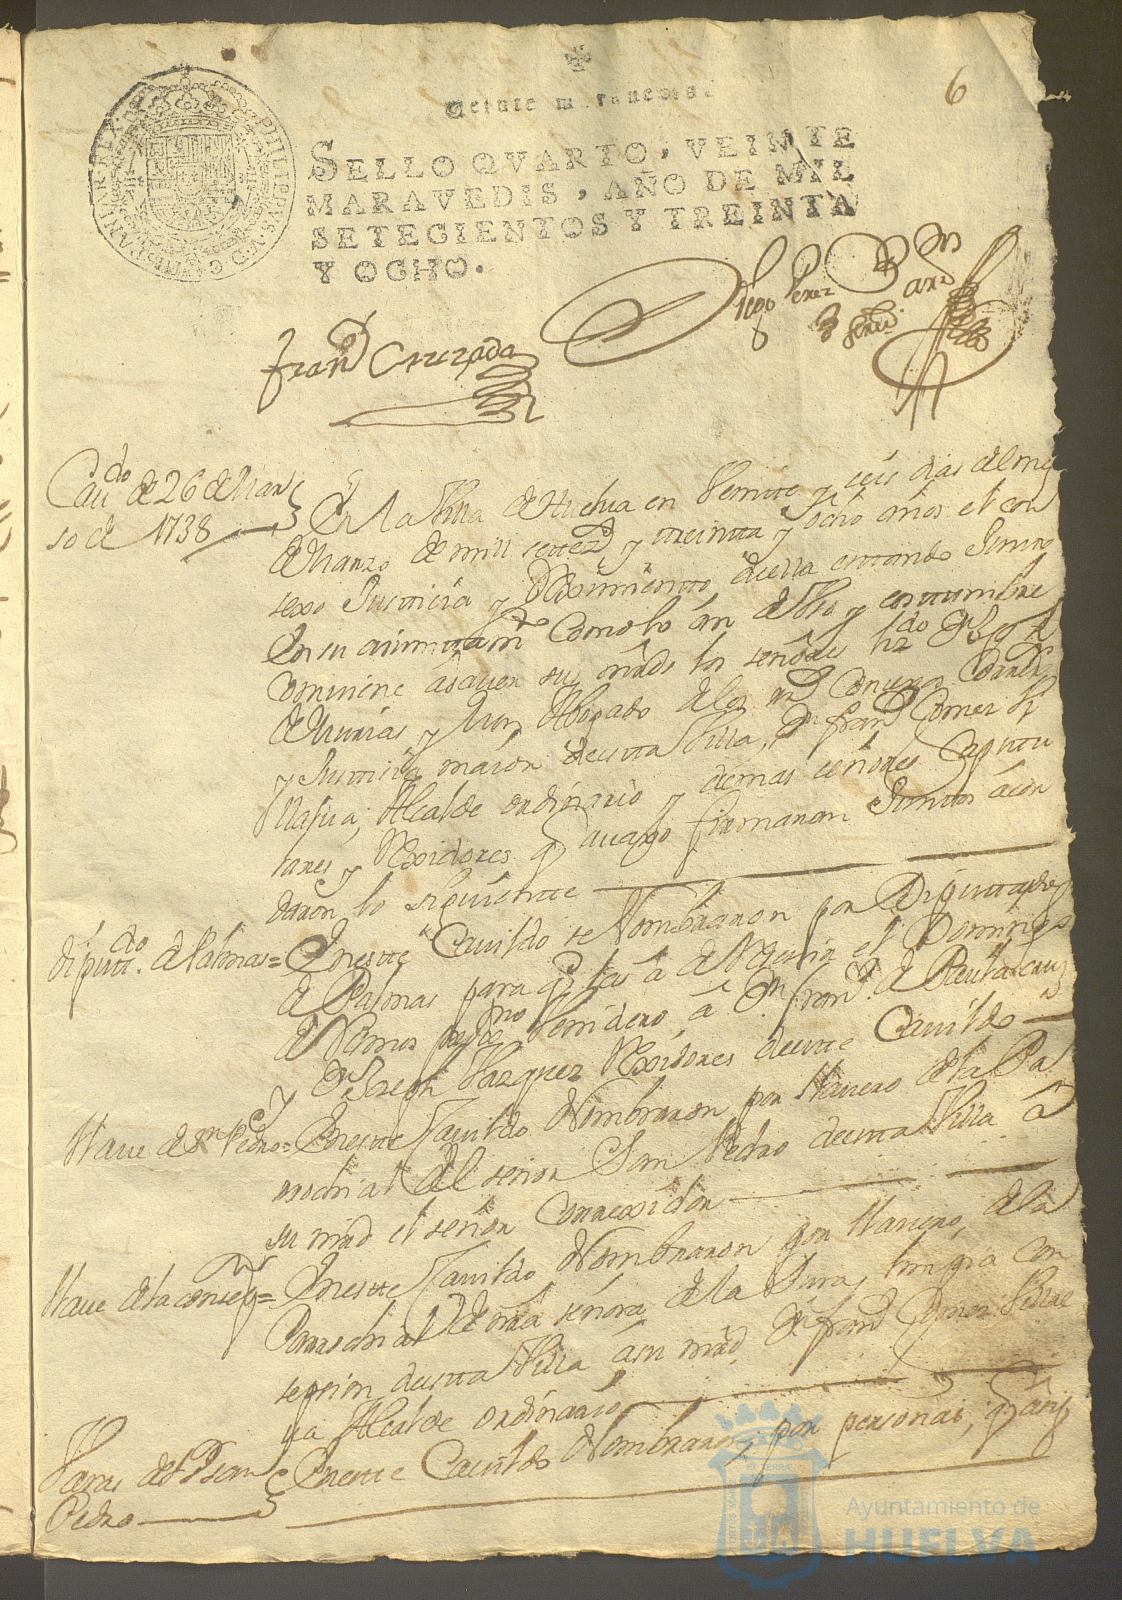 6
Veinte maravedis.
SELLO QVARTO, VEINTE
MARAVEDIS, AÑO DE MIL
SETECIENTOS Y TREINTA
Y OCHO.
PHILIPPVS V D G
Diego Perez
Franco Quezada
Caudo de 26 de Mar
so de 1738
En la Villa de Huelva en Veinte y seis dias del mes
de Marzo de mill settezs y treinta y ocho años el con
sexo Justicia y Reximiento della estando Juntos
en su aiuntamto como lo an de Vso y costumbre
conviene asaver sus mrds los señores Ldo Dn
de y Abogado de los Rs Conse Correxr
y Justicia maior de esta Villa, Dn Franco Gomez
Alcalde ordinario y demas señores Capitu
lares y Rexidores q avaxo firmaron Juntos acor
daron lo siguiente
diputdo de Palmas=
En este Cavildo se Nombraron por Diputados
de Palmas para q las â de Vendr el Domingo
de Ramos proxmo Venidero, â Dn Franco de Paula
y Dn Joseph Vazquez Rexidores de este Cavildo
Llave de Sn Pedro=
En este Cavildo Nombraron por Llavero de la Pa
rrochial del señor San Pedro de esta Villa â
su mrd el señor Correxidor
Llave de la Consepn=
En este Cavildo Nombraron por Llavero, de la
Parrochial de nra señora de la Pura y limpia Con
sepsion de esta Villa âsu mrd Dn Franco Gomez
Alcalde ordinario
Varas del
Pedro
En este Cavildo Nombraron, por personas, q
Ayuntamiento de
HUELVA